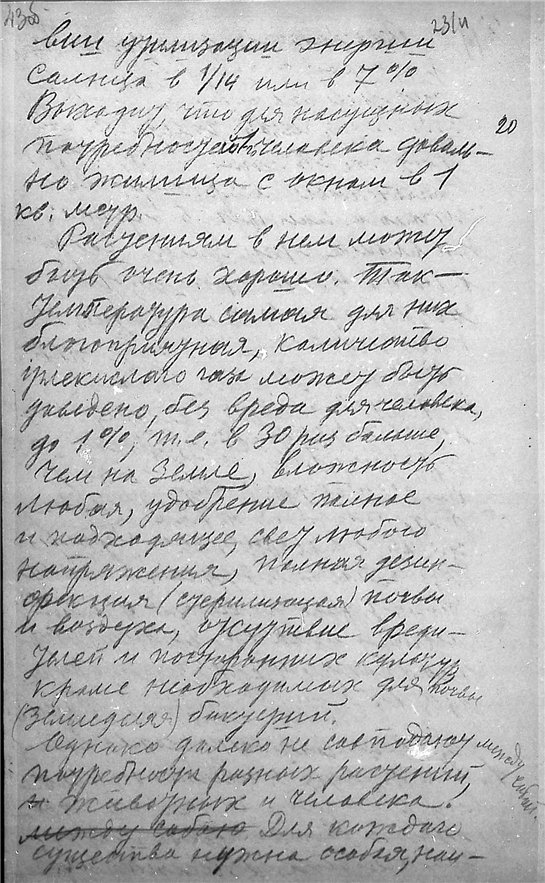 436
23/И
20
вии утилизации энергии
Солнца в 1/14 или в 7%
Выходит, что для насущных
потребностей человека доволь-
но жилища с окном в 1
кв. метр.
Растениям в нем может
быть очень хорошо. Так –
температура самая для них
благоприятная, количество
углекислого газа может быть
доведено, без вреда для человека,
до 1%, т.е. в 30 раз больше,
чем на Земле, влажность
любая, удобрение полное
и подходящее, свет любого
напряжения, полная дезин-
фекция (стерилизация) почвы
и воздуха, отсутствие вреди-
телей и посторонних культур
кроме необходимых для почвы
(земледелия) бактерий.
Однако далеко не совпадают между собой
потребности разных растений,
и животных и человека.
между собою Для каждого
существа нужна особая, наи-